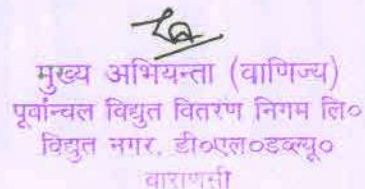 मुख्य अभियन्ता (वाणिज्य)
पूर्वान्चल विद्युत वितरण निगम लि०
विद्युत नगर, डी०एल०डव्ल्यू०
वाराणसी